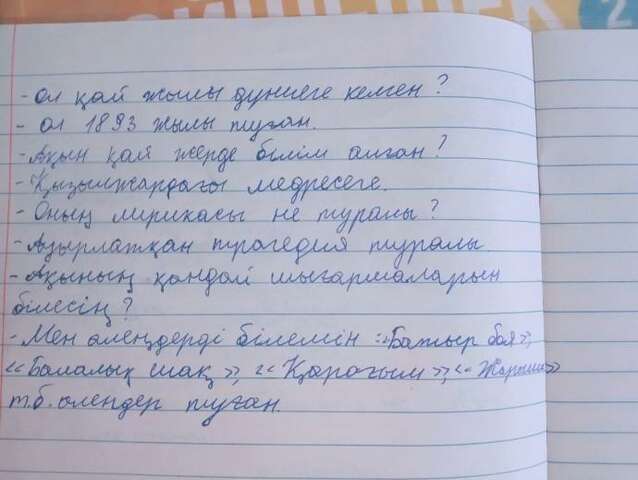 - Ол қай жылы дүниеге келген?
- Ол 1893 жылы туған.
- Ақын қай жерде білім алған?
- Қызылжардағы медресеге.
- Оның лирикасы не туралы?
- Ақырлатқан трагедия туралы.
- Ақынның қандай шығармаларын
білесің?
- Мен өлеңдерді білемін: «Батыр Баян»,
«Балалық шақ», «Қарағым», «Жаралы»
т.б. өлеңдер туған.
2